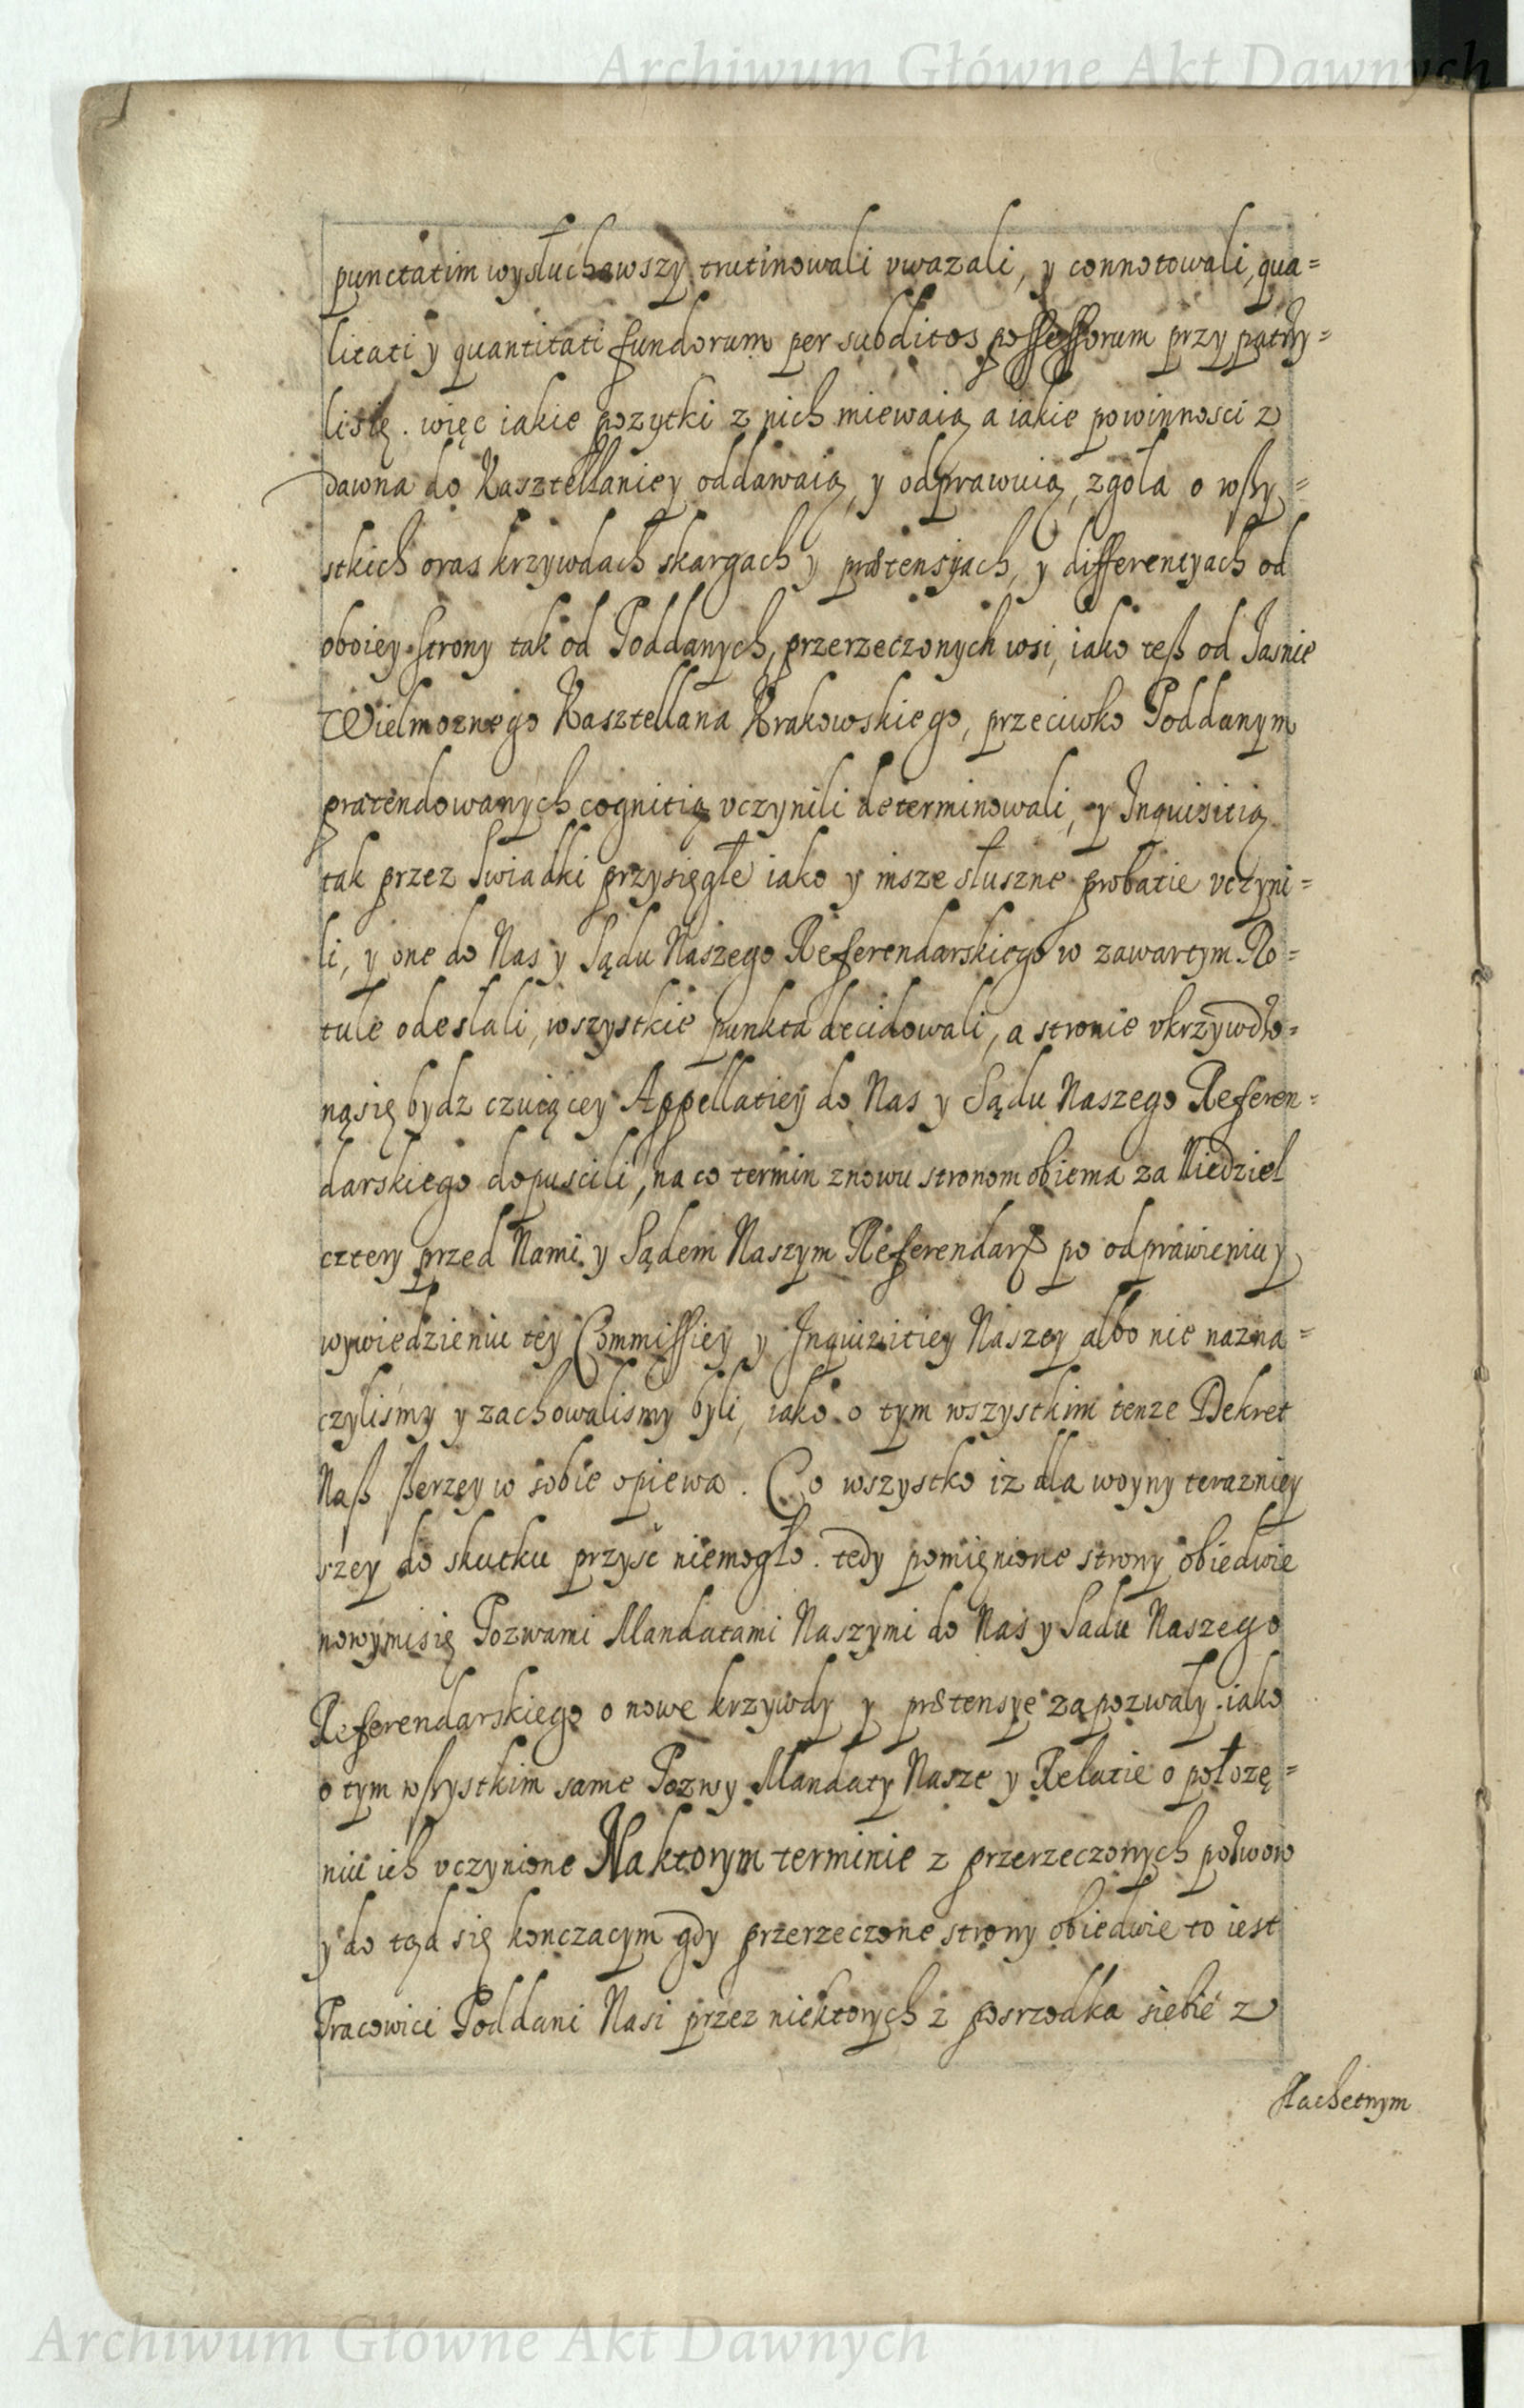 Archiwum Główne Akt Dawnych
punctatim wysłuchawszy trutinowali vwazali, y connotowali, qua=
litati y quantitati fundorum per subditos possessorum przy patrzy=
lisię. więc iakie pozytki z nich miewaią a iakie powinnosci z
dawna do Kasztellaniey oddawaią, y odprawuią, zgoła o wszy=
stkich oras krzywdach skargach y prætensyach, y differencyach od
oboiey strony tak od Poddanych, przerzeczonych wsi, iako teß od Jasnie
Wielmoznego Kasztellana Krakowskiego, przeciwko Poddanym
prætendowanych cognitią vczynili determinowali, y Inquisitią
tak przez swiadki przysięgłe iako y insze słuszne probatie vczyni=
li, y one do Nas y Sądu Naszego Referendarskiego w zawartym Ro=
tule odesłali, wszystkie punkta decidowali, a stronie vkrzywdzo=
nąsię bydz czuiącey Appellatiey do Nas y Sądu Naszego Referen=
darskiego dopuscili, na co termin znowu stronom obiema za Niedziel
cztery przed Nami y Sądem Naszym Referendarß po odprawieniu y
wywiedzieniu tey Commissiey y Inquizitiey Naszey albo nie nazna=
czylismy y zachowalismy byli, iako o tym wszystkim tenze Dekret
Naß ßerzey w sobie opiewa. Co wszystko iz dla woyny terazniey
szey do skutku przysć niemogło. tedy pomięnione strony obiedwie
nowymisię Pozwami Mandatami Naszymi do Nas y Sadu Naszego
Referendarskiego o nowe krzywdy y prætensye zapozwały. iako
o tym wszystkim same Pozwy Mandaty Nasze y Relatie o połozę=
niu ich vczynione Na ktorym terminie z przerzeczonych pozwow
y do tąd się konczacym gdy przerzeczone strony obiedwie to iest
Pracowici Poddani Nasi przez niektorych z posrzodka siebie z
ßlachetnym
Archiwum Główne Akt Dawnych